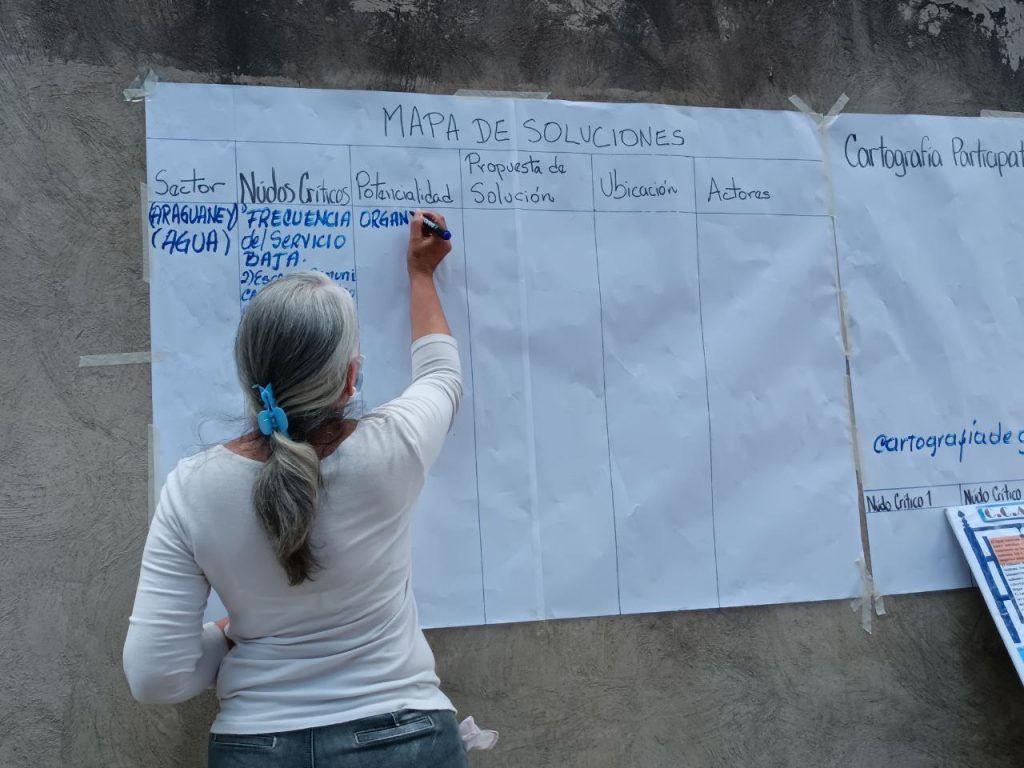 MAPA DE SOLUCIONES
Sector
Núdos Críticos
Potencialidad
Propuesta de
Solución
Ubicación
Actores
(ARAGUANEY)
(AGUA)
FRECUENCIA
de/SERVICIO
BAJA.
ORGAN
Cartografía Participat
cartografía de
Núdo Crítico 1
Núdo Crítico